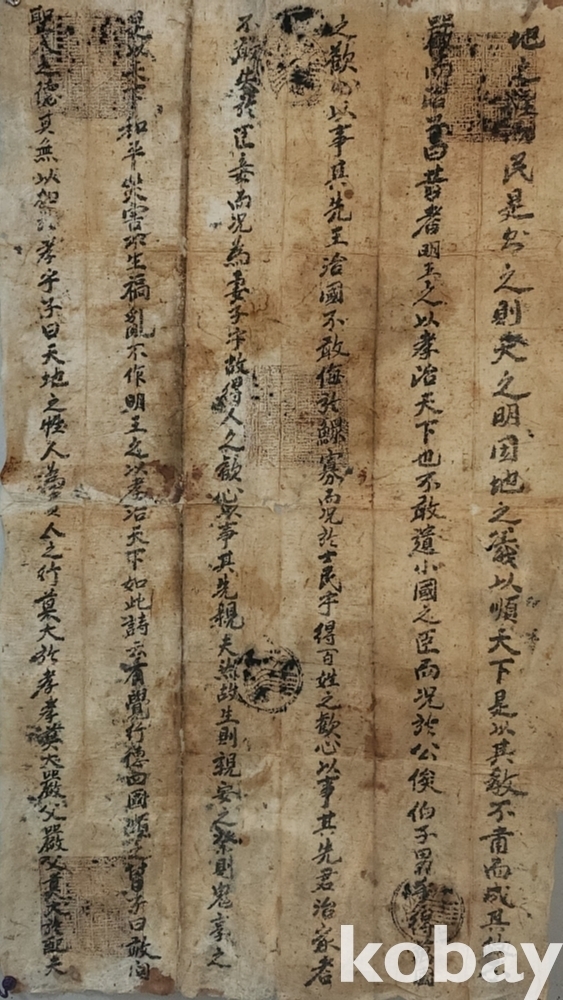 地之民是之則天之明因地之義以順天下是以其敎不肅而成其
嚴而治曰昔者明王之以孝治天下也不敢遺小國之臣而況於公侯伯子男得國
之歡心以事其先王治國不敢侮於鰥寡而況於士民乎得百姓之歡心以事其先君治家者
不敢失於臣妾而況為妻子乎故得人之歡心以事其先親夫然故生則親安之祭則鬼享之
是以天下和平災害不生禍亂不作明王之以孝治天下如此詩云有覺行德四國順之曾子曰敢問
聖人之德其無以加於孝乎子曰天地之性人為貴人之行莫大於孝孝莫大嚴父嚴父莫大於配天
kobay